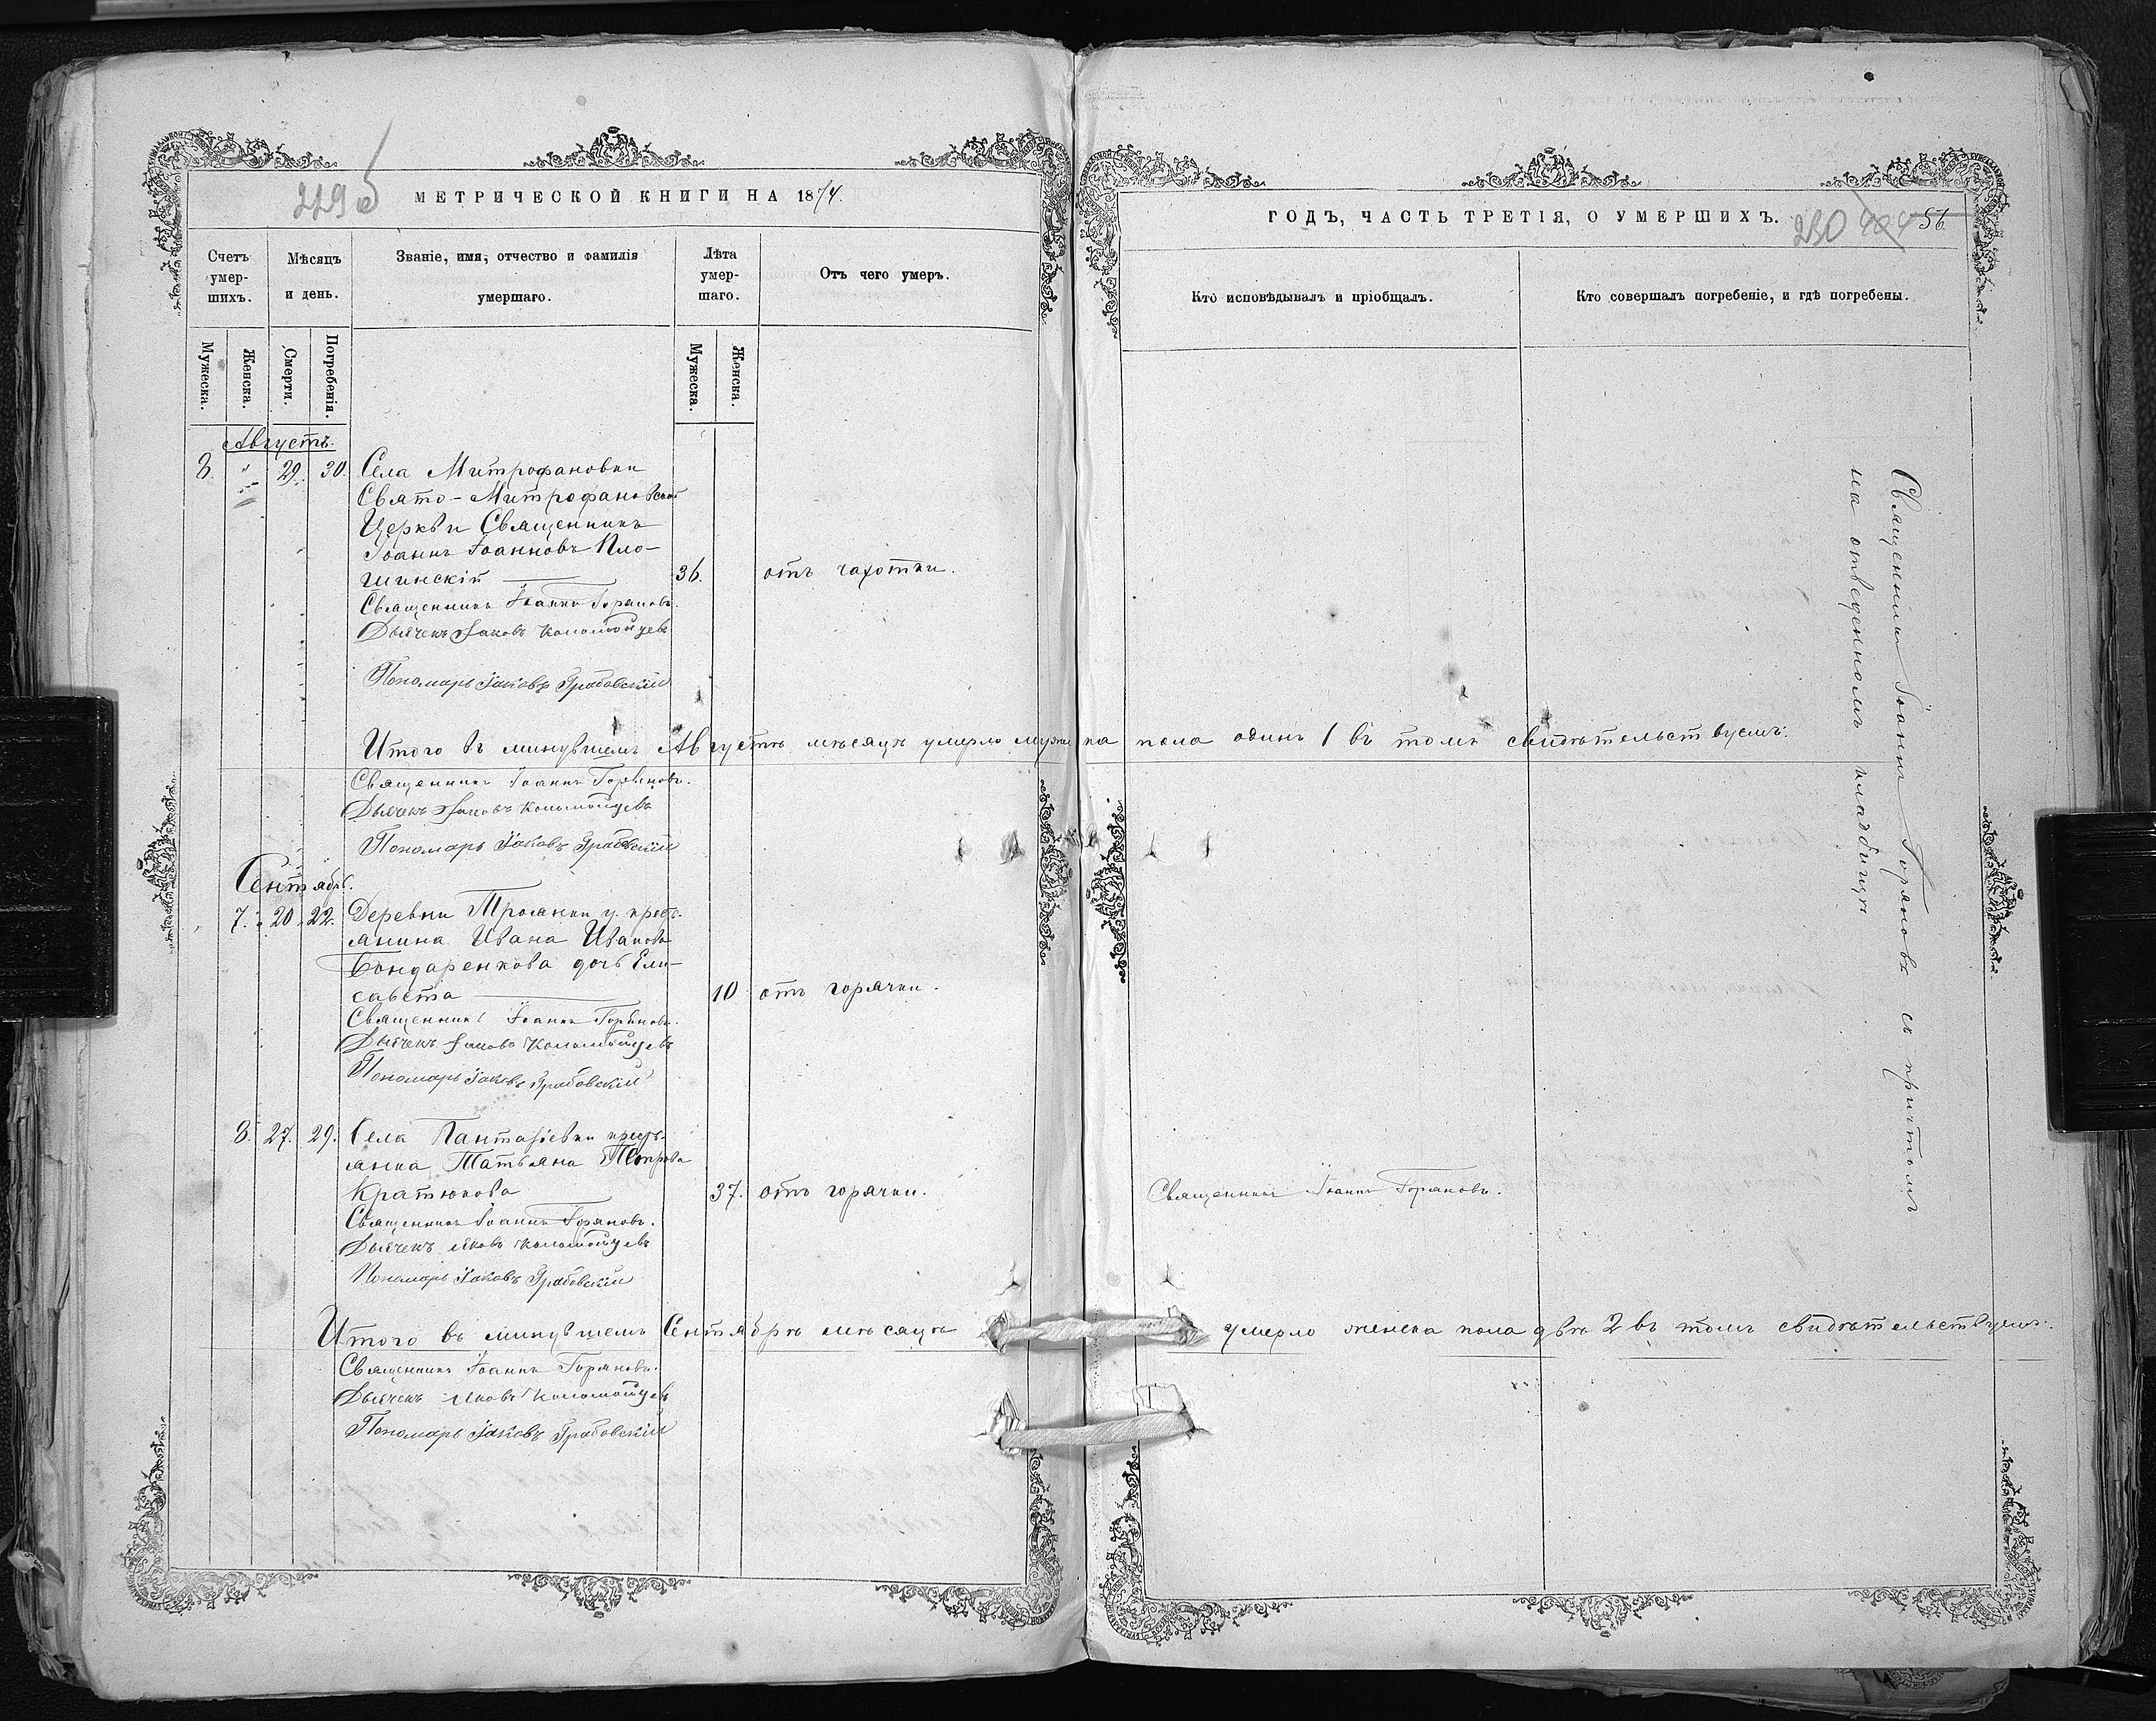 229 об
МЕТРИЧЕСКОЙ КНИГИ НА 1874.
Счетъ умер-шихъ.
Мѣсяцъ и день.
Званіе, имя, отчество и фамилія умершаго.
Лѣта умер-шаго.
Отъ чего умеръ.
Мужеска.
Женска.
Смерти.
Погребенія.
Мужеска.
Женска.
Августъ.
8. " 29. 30. Села Митрофановки
Свято-Митрофановской
Церкви Священникъ
Іоаннъ Іоанновъ Пло-
шинскій 36. отъ чахотки.
Священникъ Іоаннъ Горяновъ.
Дьячекъ Іаковъ Коломойцевъ
Пономарь Іаковъ Грабовскій
Итого въ минувшемъ Августѣ мѣсяцѣ умерло мужеска пола одинъ 1 въ томъ свидѣтельствуемъ:
Священникъ Іоаннъ Горяновъ.
Дьячекъ Іаковъ Коломойцевъ
Пономарь Іаковъ Грабовскій
Сентябрь.
7. 20. 22. Деревни кресть-
янина Ивана Иванова
Бондаренкова дочь Ели-
савета 10 отъ горячки.
Священникъ Іоаннъ Горяновъ.
Дьячекъ Іаковъ Коломойцевъ
Пономарь Іаковъ Грабовскій
8. 27. 29. Села Пантазіевки кресть-
янка Татьяна Петрова
Кратюкова 37. отъ горячки.
Священникъ Іоаннъ Горяновъ.
Дьячекъ Яковъ Коломойцевъ
Пономарь Іаковъ Грабовскій
Итого въ минувшемъ Сентябрѣ мѣсяцѣ умерло женска пола двѣ 2 въ томъ свидѣтельствуемъ:
Священникъ Іоаннъ Горяновъ.
Дьячекъ Яковъ Коломойцевъ
Пономарь Іаковъ Грабовскій
ГОДЪ, ЧАСТЬ ТРЕТІЯ, О УМЕРШИХЪ.
230 404 56
Кто исповѣдывалъ и пріобщалъ.
Кто совершалъ погребеніе, и гдѣ погребены.
Священникъ Іоаннъ Горяновъ.
Священникъ Іоаннъ Горяновъ съ причтомъ
на отведенномъ кладбищѣ